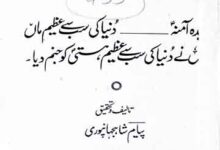 دہ آمنہؓ ــــــــ دُنیا کی سب سے عظیم ماں
نے دُنیا کی سب سے عظیم ہستیؐ کو جنم دیا۔
تالیف و تحقیق
پیام شاہجہانپوری